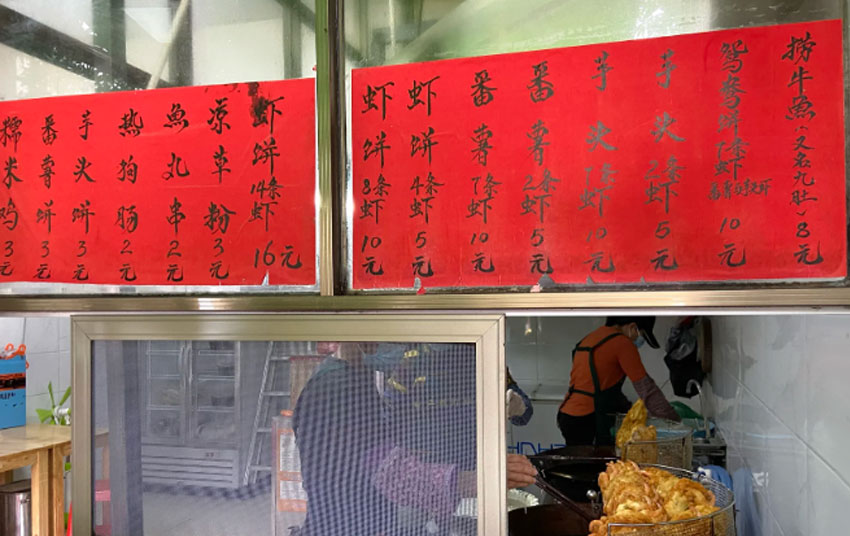 糯米鸡3元
番薯饼3元
芋头饼3元
热狗肠2元
魚丸串2元
凉草粉3元
虾饼14条虾16元
虾饼8条虾10元
虾饼4条虾5元
番薯7条虾10元
番薯2条虾5元
芋头7条虾10元
芋头2条虾5元
鸳鸯饼7条虾10元
捞牛魚(又名九肚)8元